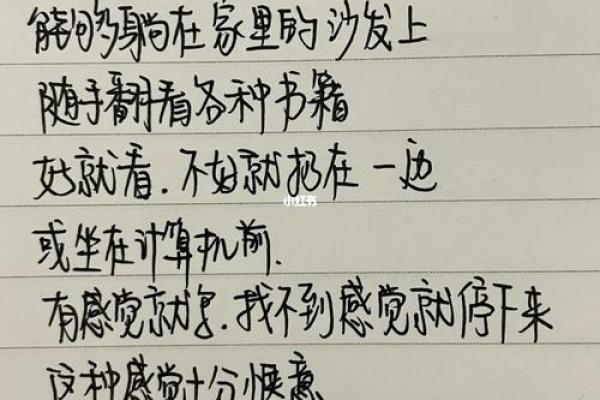 能够躺在家里的沙发上
随手翻看各种书籍
好就看.不好就扔在一边
小红书
或坐在计算机前.
有感觉就写.找不到感觉就停下来
这种感觉十分惬意